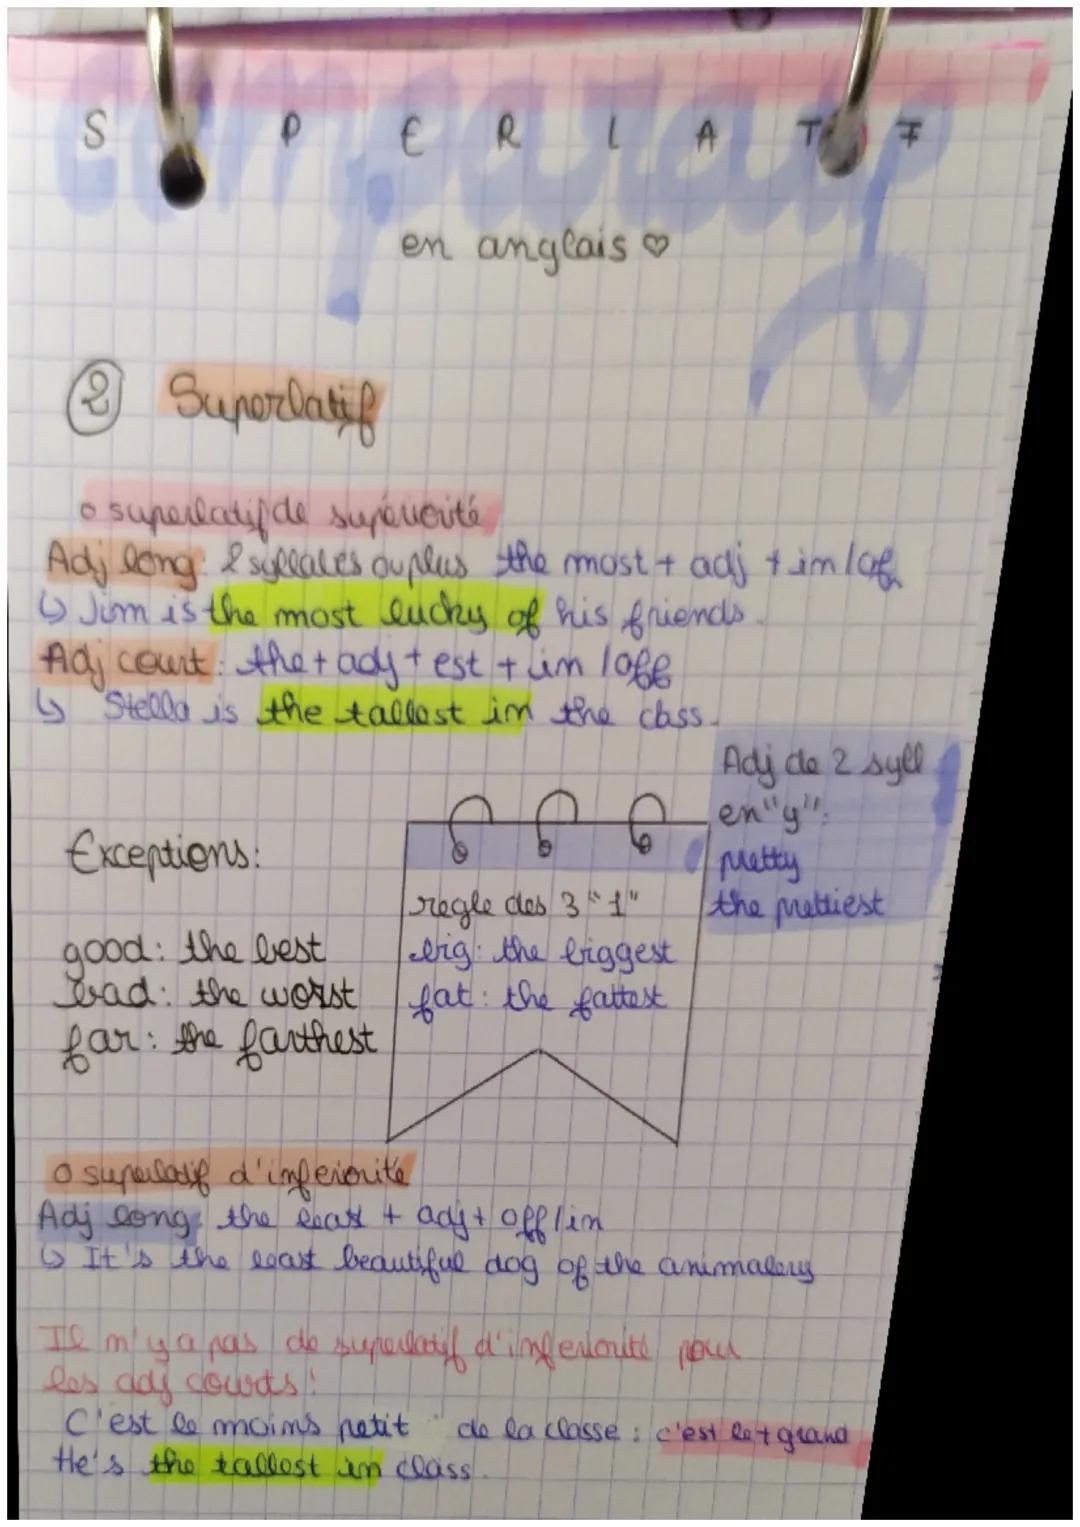 S U P E R L A T I F
comparatif
en anglais ♡
② Superlatif
o superlatif de supériorité
Adj long: 2 syllabes ou plus the most + adj + in/of
↳ Jim is the most lucky of his friends.
Adj court: the + adj + est + in /off
↳ Stella is the tallest in the class.
Adj de 2 syll
en "y":
pretty
the prettiest
Exceptions:
good: the best
bad: the worst
far: the farthest
règle des 3 "1"
big: the biggest
fat: the fattest
o superlatif d'inferiorité
Adj long: the least + adj + off/in
↳ It's the least beautiful dog of the animalery
Il n'y a pas de superlatif d'inferiorité pour
les adj courts!
C'est le moins petit de la classe : c'est le + grand
He's the tallest in class.